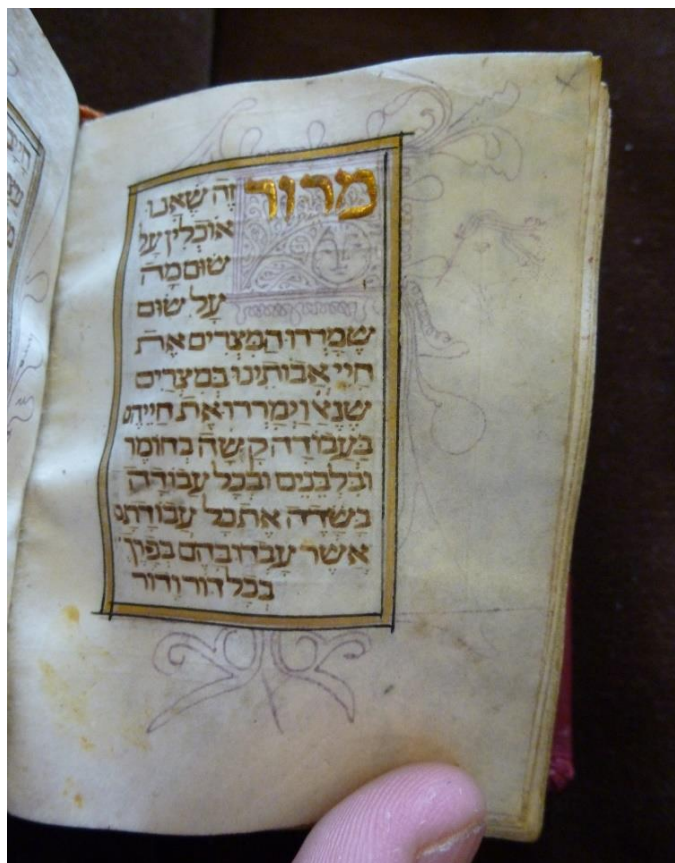 מרור זה שאנו
אוכלין על
שום מה
על שום
שמררו המצרים את
חיי אבותינו במצרים
שנא וימררו את חייהם
בעבודה קשה בחומר
ובלבנים ובכל עבודה
בשדה את כל עבודתם
אשר עבדו בהם בפרך
בכל דור ודור